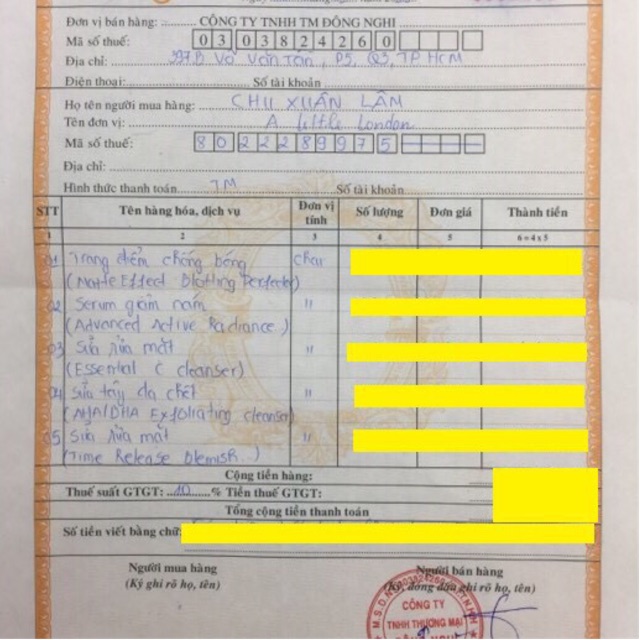 Đơn vị bán hàng: CÔNG TY TNHH TM ĐÔNG NGHI
Mã số thuế: 0303824260
Địa chỉ: 397B Võ Văn Tần, P5, Q3, TP HCM
Điện thoại: Số tài khoản
Họ tên người mua hàng: CHU XUÂN LÂM
Tên đơn vị: A little London
Mã số thuế: 8022289975
Địa chỉ:
Hình thức thanh toán TM Số tài khoản
STT Tên hàng hóa, dịch vụ Đơn vị tính Số lượng Đơn giá Thành tiền
1 2 3 4 5 6=4x5
01 Trang điểm chống bóng chai
(Matte Effect Blotting Perfector)
02 Serum giảm nám "
(Advanced Active Radiance)
03 Sữa rửa mặt "
(Essential C cleanser)
04 Sữa tẩy da chết "
(AHA/BHA Exfoliating cleanser)
05 Sữa rửa mặt "
(Time Release Blemish..)
Cộng tiền hàng:
Thuế suất GTGT: 10 % Tiền thuế GTGT:
Tổng cộng tiền thanh toán
Số tiền viết bằng chữ:
Người mua hàng Người bán hàng
(Ký ghi rõ họ, tên) (Ký, đóng dấu ghi rõ họ, tên)
CÔNG TY
TNHH THƯƠNG MẠI